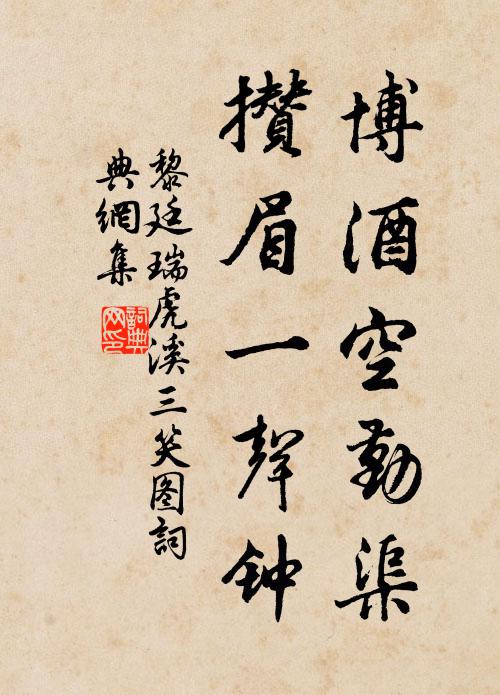 博酒空勤渠
攒眉一声钟
黎廷瑞虎溪三笑图詞
典網集
詞典网印